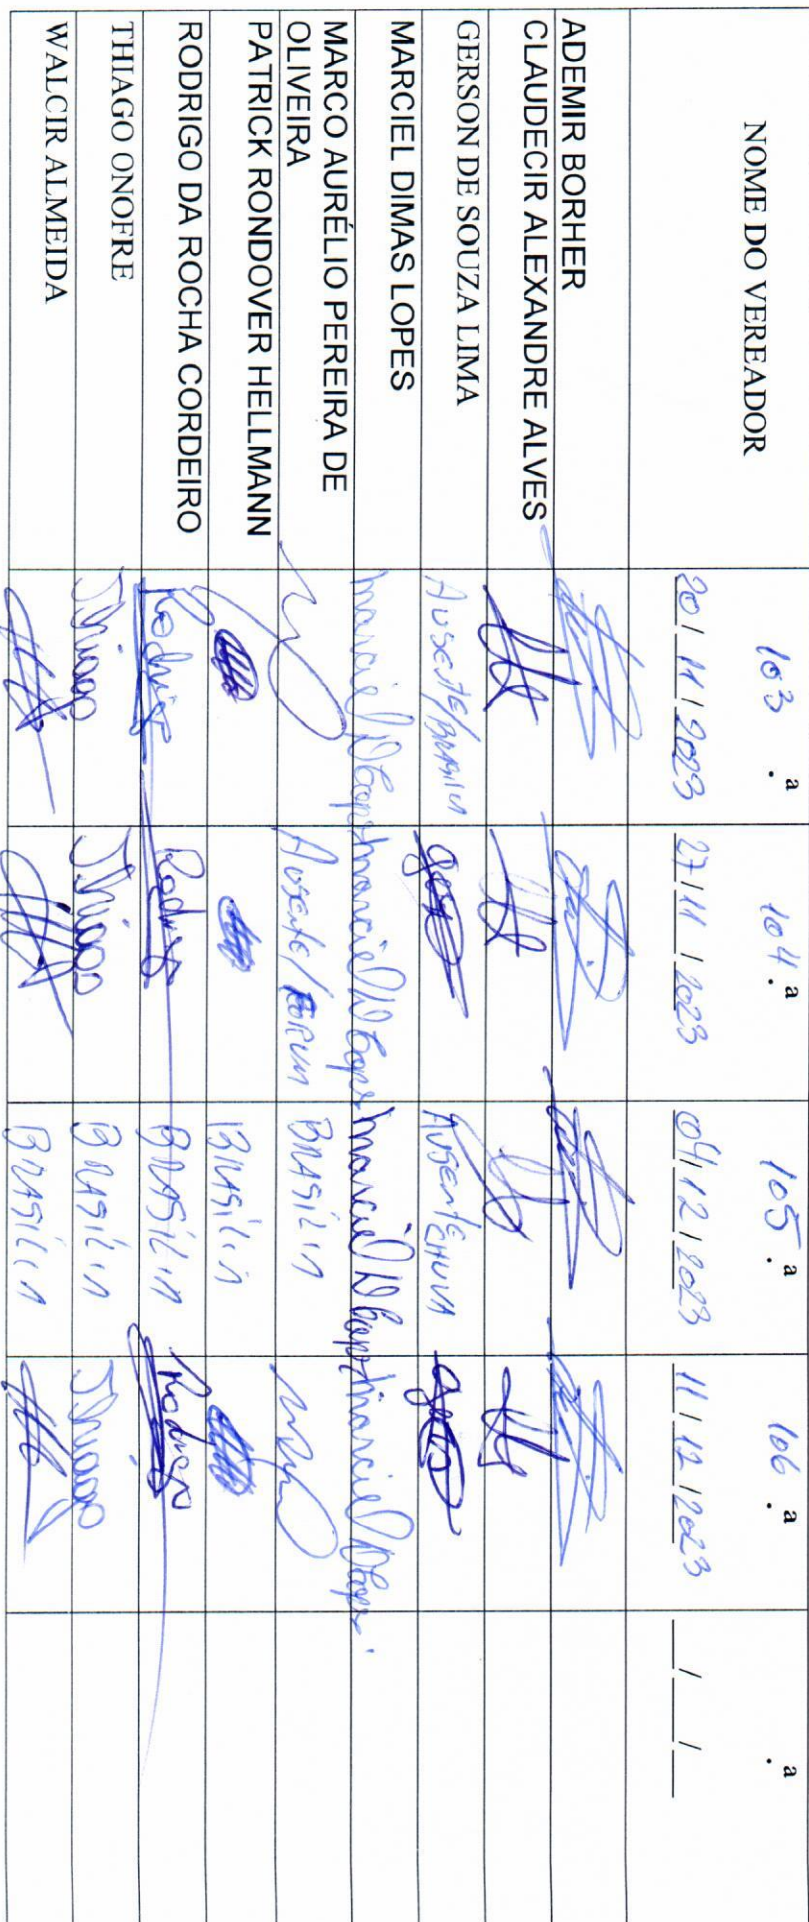 NOME DO VEREADOR 103 .a 104 .a 105 .a 106 .a .a
20/11/2023 27/11/2023 04/12/2023 11/12/2023 __/__/__
ADEMIR BORHER
CLAUDECIR ALEXANDRE ALVES
GERSON DE SOUZA LIMA AUSENTE/BRASÍLIA AUSENTE CHUVA
MARCIEL DIMAS LOPES Marciel D Lopes Marciel D Lopes Marciel D Lopes Marciel D Lopes
MARCO AURÉLIO PEREIRA DE Ausente/FORUM BRASÍLIA
OLIVEIRA
PATRICK RONDOVER HELLMANN BRASÍLIA
RODRIGO DA ROCHA CORDEIRO Rodrigo Rodrigo BRASÍLIA Rodrigo
THIAGO ONOFRE Thiago Thiago BRASÍLIA Thiago
WALCIR ALMEIDA BRASÍLIA